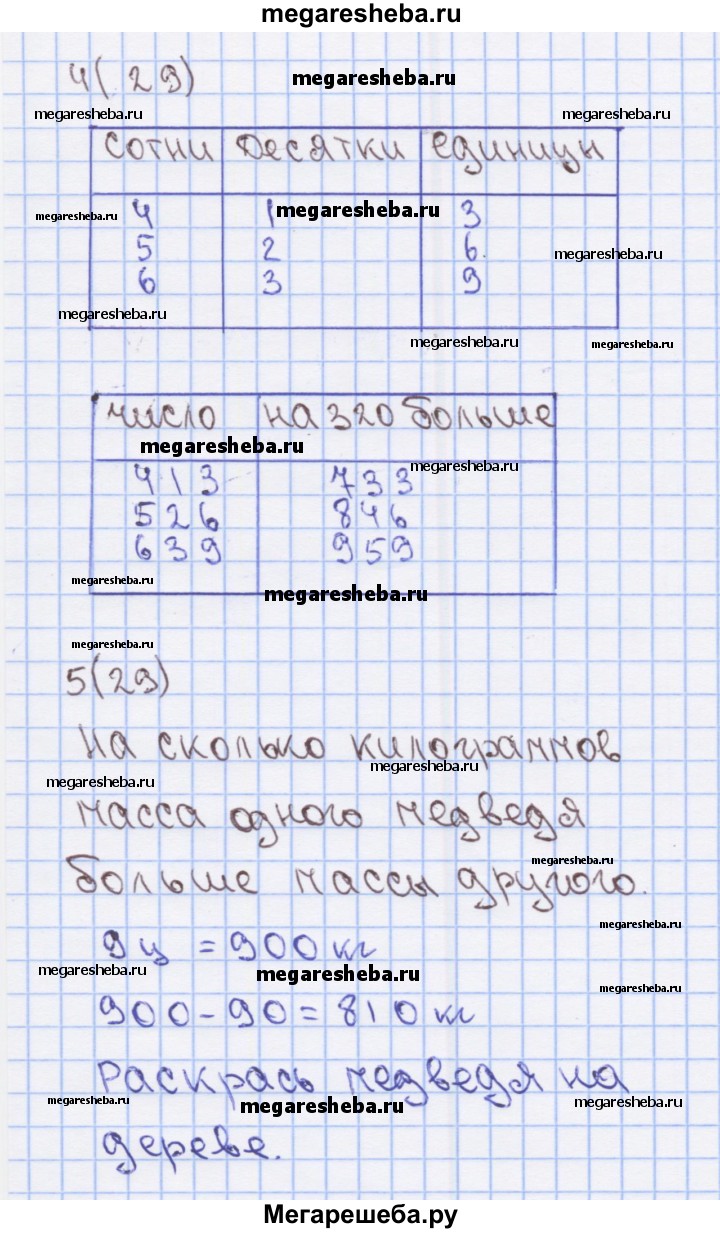 megaresheba.ru
4(29)
megaresheba.ru
megaresheba.ru
megaresheba.ru
сотни десятки единицы
megaresheba.ru
4 1 3
megaresheba.ru
5 2 6
megaresheba.ru
6 3 9
megaresheba.ru
megaresheba.ru
megaresheba.ru
число на 320 больше
megaresheba.ru
megaresheba.ru
413 733
526 846
639 959
megaresheba.ru
megaresheba.ru
megaresheba.ru
5(29)
На сколько килограммов
megaresheba.ru
megaresheba.ru
масса одного медведя
megaresheba.ru
больше массы другого.
megaresheba.ru
9ц = 900 кг
megaresheba.ru
megaresheba.ru
megaresheba.ru
900-90=810 кг
Раскрась медведя на
megaresheba.ru
megaresheba.ru
megaresheba.ru
дереве.
Мегарешеба.ру